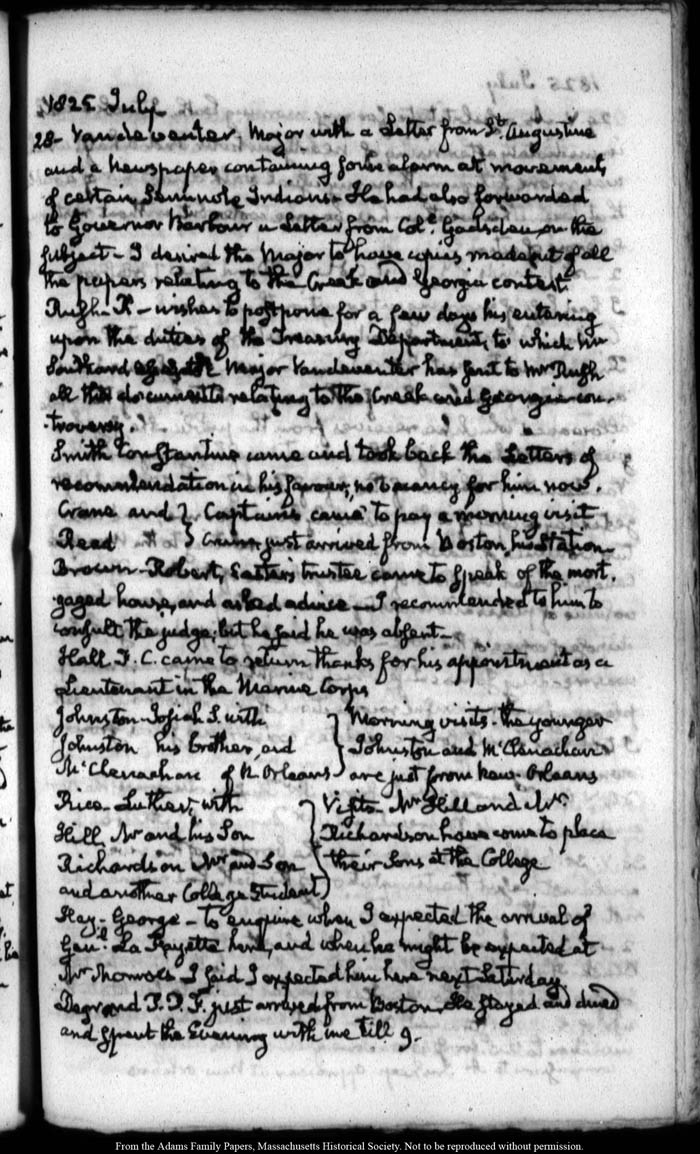 1825 July
28- Vandeventer. Major with a Letter from St. Augustine
and a Newspaper containing some alarm at movements
of certain Seminole Indians. He had also forwarded
to Governor Barbour a Letter from Coll. Gadsden on the
subject - I desired the Major to have copies made out of all
the papers relating to the Creek and Georgia contest
Rush. R - wishes to postpone for a few days his entering
upon the duties of the Treasury Department, to which Mr
Southard Major Vandeventer has sent to Mr Rush
all the documents relating to the Creek and Georgia con-
-troversy.
Smith Constantine came and took back the Letters of
recommendation in his favour, no vacancy for him now.
Crane and } Captains came to pay a morning visit
Read } Crane just arrived from Boston, his Station-
Brown-Robert, trustee came to speak of the mort-
gaged house, and asked advice - I recommended to him to
consult the judge; but he said he was absent-
Hall. J. C. came to return thanks for his appointment as a
Lieutenant in the Marine Corps
Johnston-Josiah S. with } Morning visits. the younger
Johnston his brother, and } Johnston and McClenachan
McClenachan of N. Orleans } are just from New-Orleans
Rice-Luther, with } Visits Mr Hill and Mr.
Hill Mr and his Son } Richardson have come to place
Richardson Mr and Son } their Sons at the College
and another College Student }
Hay-George - to enquire when I expected the arrival of
Genl. La Fayette here, and when he might be expected at
Mr Monroe's I said I expected him here next Saturday
Degrand P. P. F. just arrived from Boston. He stayed and dined
and spent the Evening with me till 9.
From the Adams Family Papers, Massachusetts Historical Society. Not to be reproduced without permission.